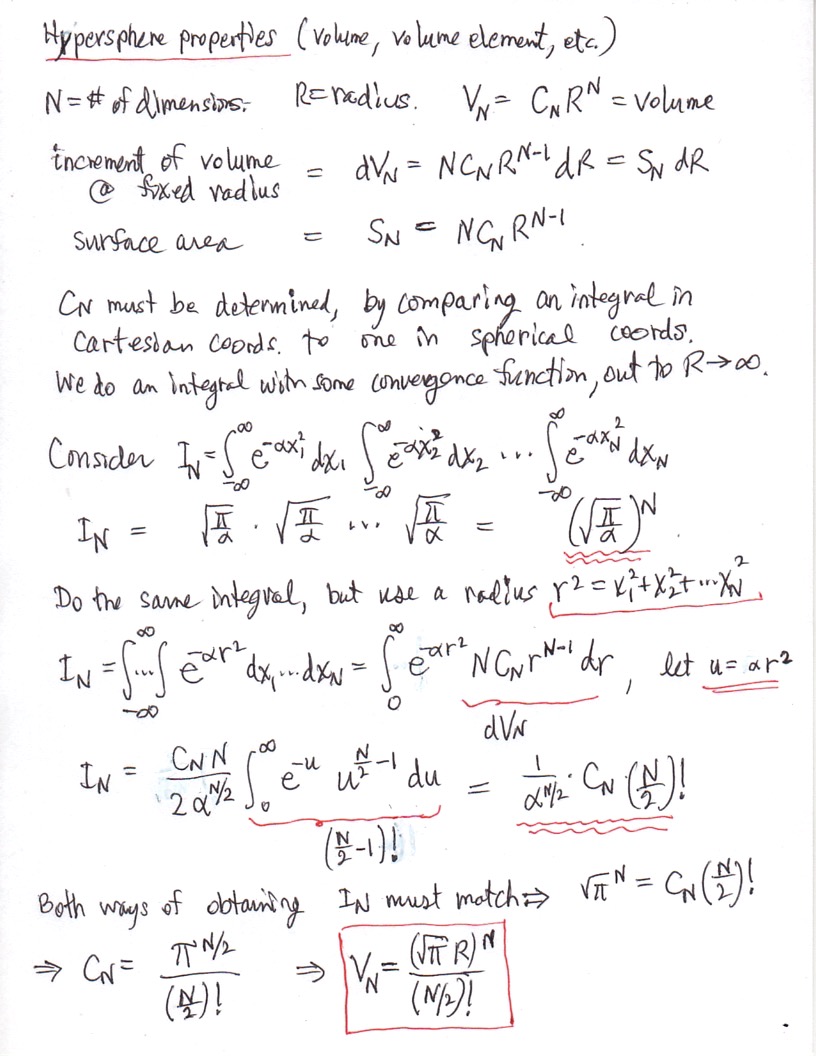 Hypersphere properties (volume, volume element, etc.)
N = # of dimensions. R = radius. V_N = C_N R^N = volume
increment of volume @ fixed radius = dV_N = N C_N R^{N-1} dR = S_N dR
surface area = S_N = N C_N R^{N-1}
C_N must be determined, by comparing an integral in
Cartesian coords. to one in spherical coords.
We do an integral with some convergence function, out to R→∞.
Consider I_N = ∫_{-∞}^{∞} e^{-αx_1^2} dx_1 ∫_{-∞}^{∞} e^{-αx_2^2} dx_2 ... ∫_{-∞}^{∞} e^{-αx_N^2} dx_N
I_N = √(π/α) · √(π/α) ... √(π/α) = (√(π/α))^N
Do the same integral, but use a radius r^2 = x_1^2 + x_2^2 + ... x_N^2
I_N = ∫...∫_{-∞}^{∞} e^{-αr^2} dx_1...dx_N = ∫_0^∞ e^{-αr^2} N C_N r^{N-1} dr, let u = αr^2
dV_N
I_N = (C_N N)/(2α^{N/2}) ∫_0^∞ e^{-u} u^{N/2-1} du = 1/α^{N/2} · C_N (N/2)!
(N/2-1)!
Both ways of obtaining I_N must match ⇒ √π^N = C_N (N/2)!
⇒ C_N = π^{N/2}/(N/2)! ⇒ V_N = (√π R)^N/(N/2)!